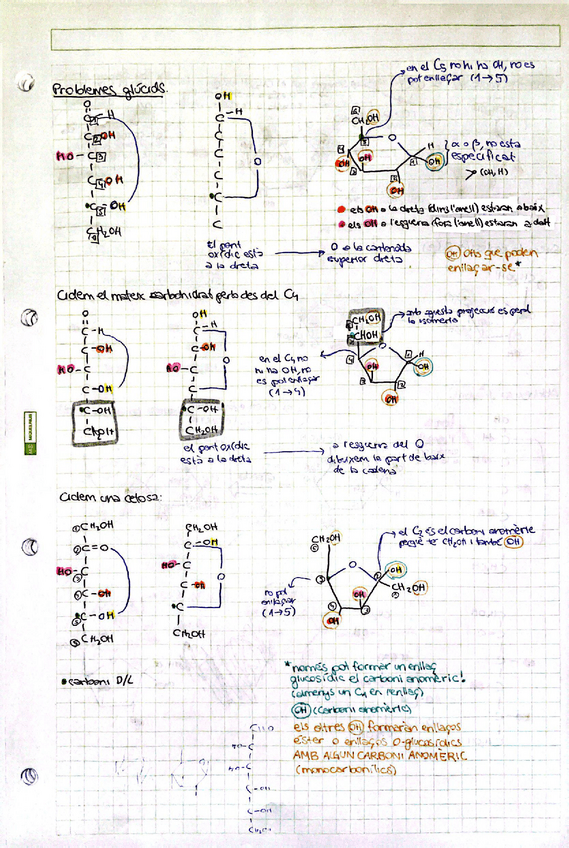 en el C5 no hi ha OH, no es
pot enllaçar (1→5)
Problemes glúcids.
α o β, no esta
especificat
(OH, H)
els OH a la dreta (dins l'anell) estaran a baix
els OH a l'esquerra (fora l'anell) estaran a dalt
el pont
oxídic està
a la dreta
O a la cantonada
superior dreta
OH OHs que poden
enllaçar-se*
Ciclem el mateix carbohidrat però des del C4
CH2OH
CHOH
amb aquesta projecció es perd
la isomeria
en el C4 no
hi ha OH, no
es pot enllaçar
(1→4)
C-OH
CH2OH
C-OH
CH2OH
el pont oxídic
està a la dreta
a l'esquerra del O
dibuixem la part de baix
de la cadena
Ciclem una cetosa:
CH2OH
C=O
HO-C
C-OH
C-OH
CH2OH
CH2OH
C-OH
HO-C
C-OH
C
CH2OH
CH2OH
O
OH
CH2OH
el C2 és el carboni anomèric
perquè té CH2OH i també OH
no pot
enllaçar
(1→5)
• carboni D/L
*només pot formar un enllaç
glucosídic el carboni anomèric!
(almenys un C1 en l'enllaç)
OH (carboni anomèric)
els altres OH formaran enllaços
èster o enllaços O-glucosídics
AMB ALGUN CARBONI ANOMÈRIC
(monocarbonílics)